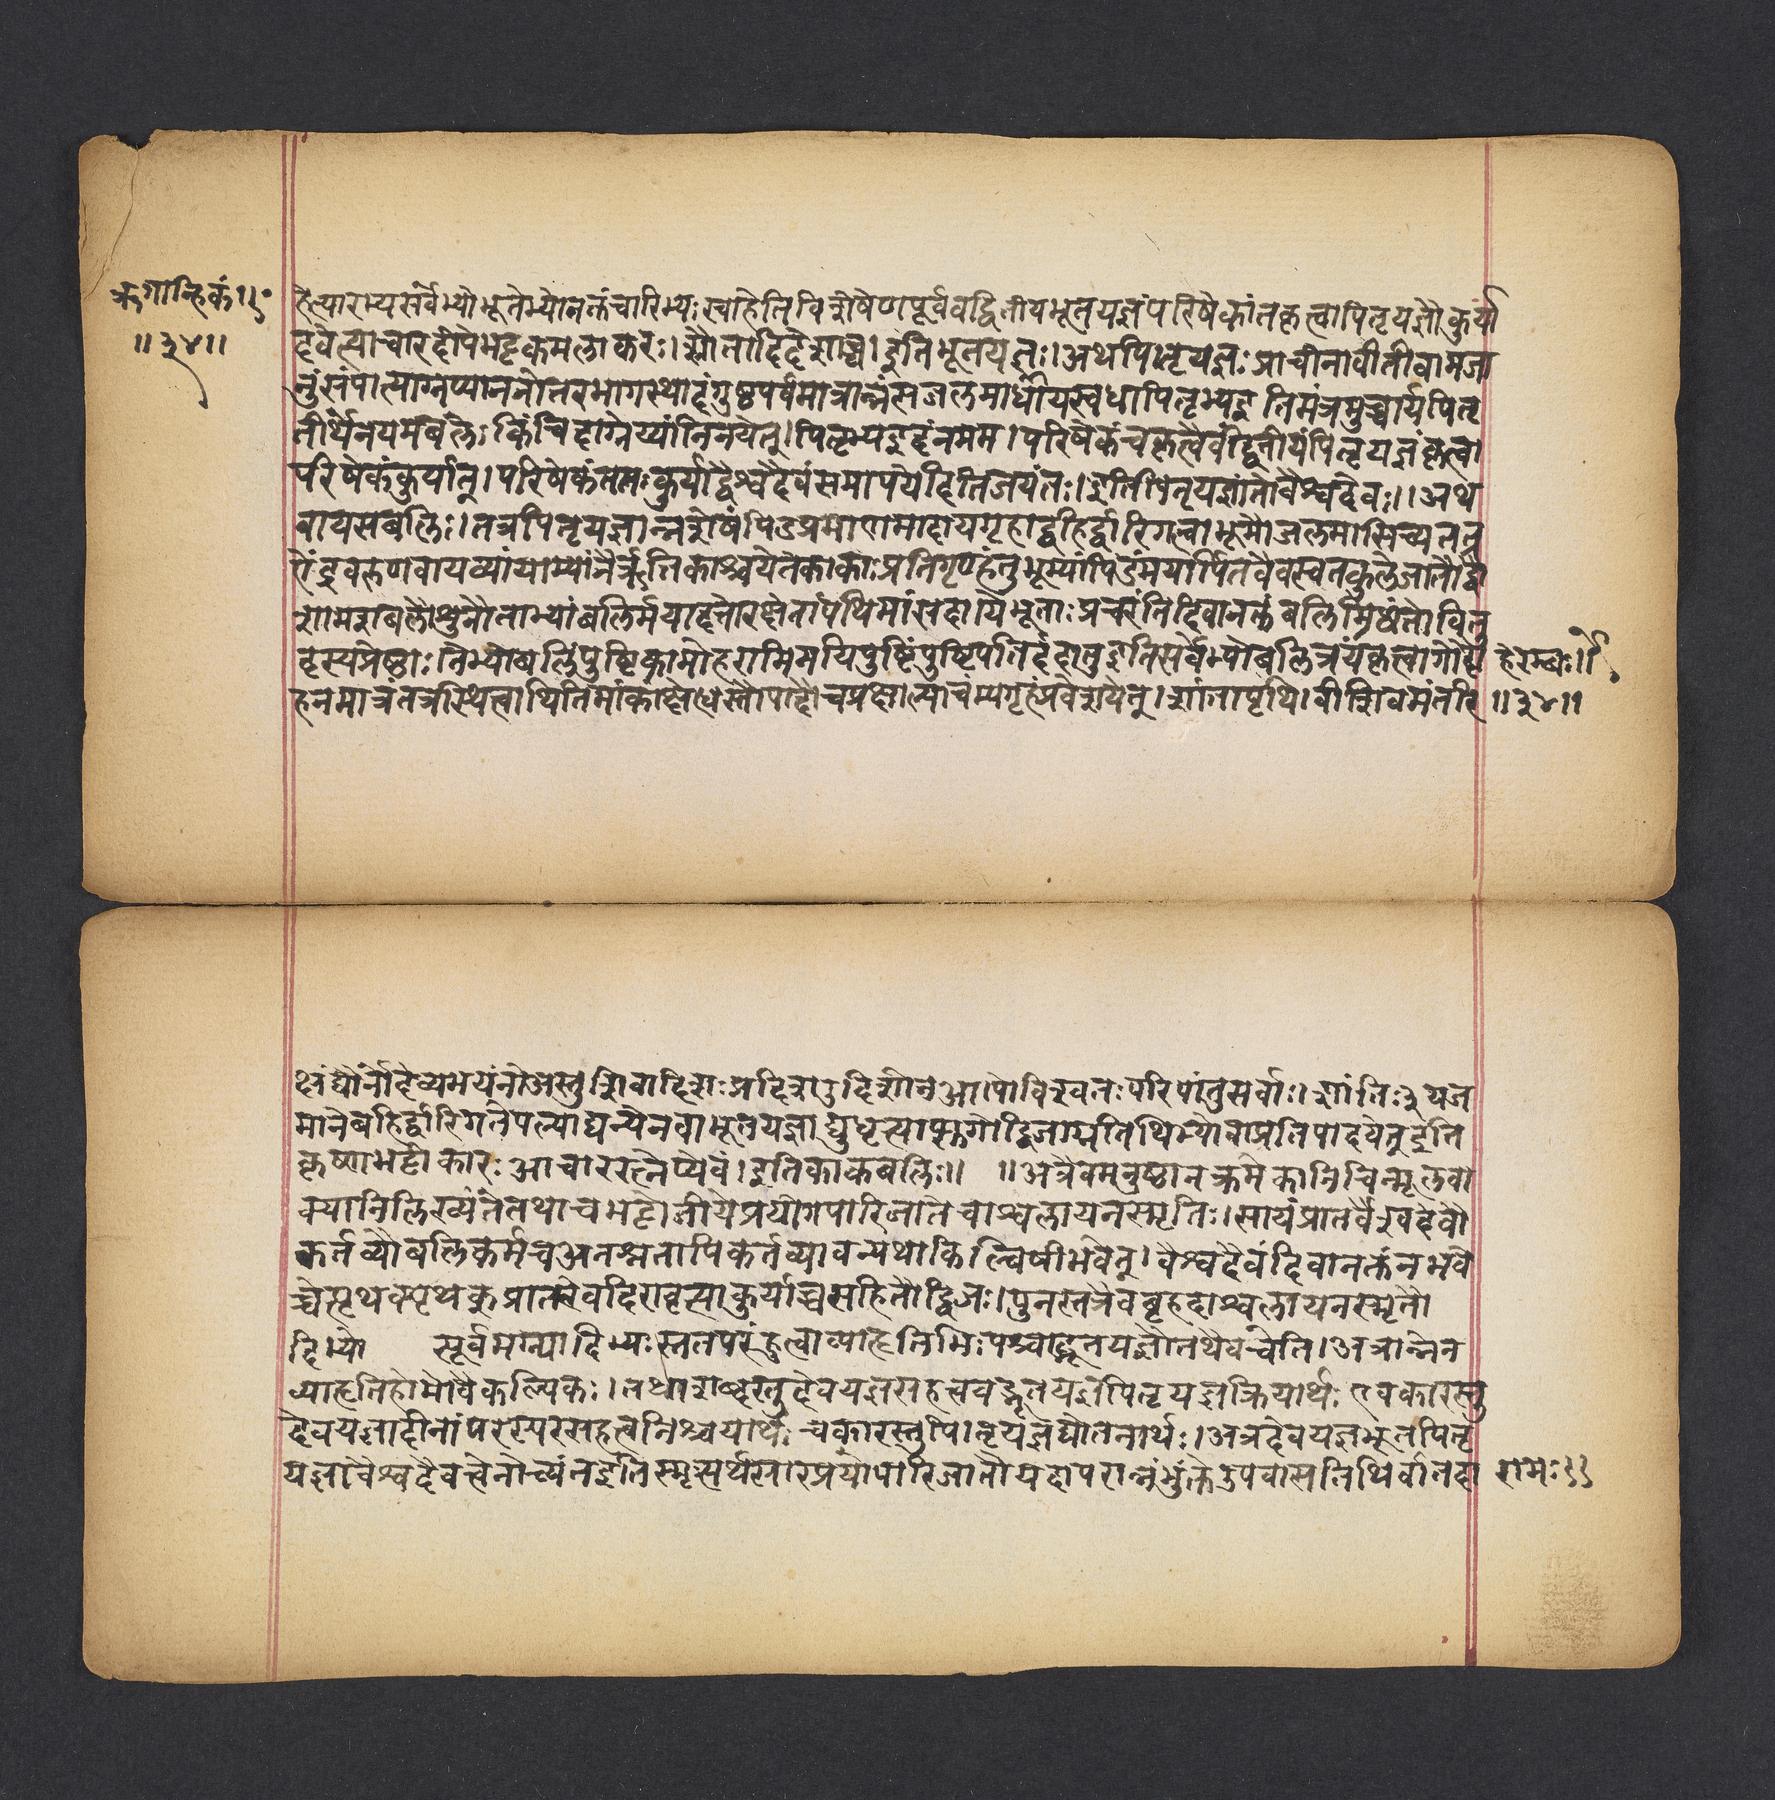 ऋगान्हिकं॥
॥३४॥
हेत्यारभ्यसर्वेभ्योभूतेभ्योनक्तंचारिभ्यःस्वाहेतिविशेषेणपूर्ववद्वितीयभूतयज्ञंपरिषेकांतकृत्वापितृयज्ञौकुर्या
दवेत्याचारदीपेभट्टकमलाकरः।स्रौतादिदेशाच्च।इतिभूतयज्ञः।अथपितृयज्ञःप्राचीनावीतीवामजा
नुंसंपात्याग्नेप्याननोत्तरभागस्थादंगुष्ठपर्वमात्रान्नंसजलमाधीयस्वधापितृभ्यइतिमंत्रमुच्चार्यपितृ
तीर्थेनेयमबलेःकिंचिदाग्नेय्यांनिनयेत्।पितृभ्यइदंनमम।परिषेकंचकृत्वैवंद्वितीयंपितृयज्ञंकृत्वा
परिषेकंकुर्यात्।परिषेकंततःकुर्याद्वैश्वदेवंसमापयेदितिजयंतः।इतिपितृयज्ञांतोवैश्वदेवः॥अथ
वायसबलिः।तत्रपितृयज्ञान्नशेषंपिंडप्रमाणमादायगृहाद्बहिर्द्वारिगत्वाभूमौजलमासिच्यतत्र
ऐंद्रवरुणवायव्यांयाम्यांनैर्ऋतिकाश्चयेतेकाकाःप्रतिगृण्हंतुभूम्यांपिंडंमयार्पितंवैवस्वतकुलेजातौद्वौ
शामशबलौशुनौताभ्यांबलिर्मयादत्तोरक्षेतांपथिमांसदा।येभूताःप्रचरंतिदिवानक्तंबलिमिछंतोवितु
दस्यप्रेष्ठाःतेभ्योबलिंपुष्टिकामोहरामिमयिपुष्टिंपुष्टिपतिर्ददातुइतिसर्वेभ्योबलित्रयंकृत्वागोदो
हेरम्बः॥
हनमात्रंतत्रस्थित्वाथितिमांकांक्षेत्ततोपादौचप्रक्षाल्याचम्यगृहंप्रवेशयेत्।शांतापृथिवीशिवमंतरि
॥३४॥
क्षंद्यौर्नोदेव्यभयंनोअस्तुशिवादिशःप्रदिशउद्दिशोनआपोविश्वतःपरिपांतुसर्वाः।शांतिः३यज
मानेबहिर्द्वारिगतेपत्न्याद्यन्येनवाभूतयज्ञाद्युधृत्याप्सुगोद्विजाग्नतिथिभ्योवाप्रतिपादयेत्इति
कृष्णभट्टीकारःआचाररत्नेप्येवं।इतिकाकबलिः॥ ॥अत्रैवमनुष्ठानक्रमेकानिचिन्मूलवा
क्यानिलिख्यंतेतथाचभट्टोजीयेप्रयोगपारिजातेचाश्वलायनस्मृतिः।सायंप्रातर्वैश्वदेवौ
कर्तव्यौबलिकर्मचअनश्नतापिकर्तव्यावन्यथाकिल्बिषीभवेत्।वैश्वदेवंदिवानक्तंनभवे
च्चेत्पृथक्पृथक्प्रातरेवद्विरावृत्याकुर्याच्चसहितौद्विजः।पुनस्तत्रैवबृहदाश्वलायनस्मृतौ
दिभ्यो सूर्वमग्न्यादिभ्यःस्ततपरंहुत्वाव्याहृतिभिःपश्चाद्भूतयज्ञौतथैवचेति।अत्रान्नेन
व्याहृतिहोमोवैकल्पिकः।तथाशब्दस्तुदेवयज्ञसहत्त्ववद्भूतयज्ञपितृयज्ञक्रियार्थःएवकारस्तु
देवयज्ञादीनांपरस्परसहत्वनिश्चयार्थःचकारस्तुपितृयज्ञद्योतनार्थः।अत्रदेवयज्ञभूतपितृ
यज्ञावैश्वदेवत्वेनोच्यंतइतिस्मृत्यर्थसारप्रयोपारिजातौयदापरान्नंभुंक्तेउपवासतिथिर्वातदा
रामः॥